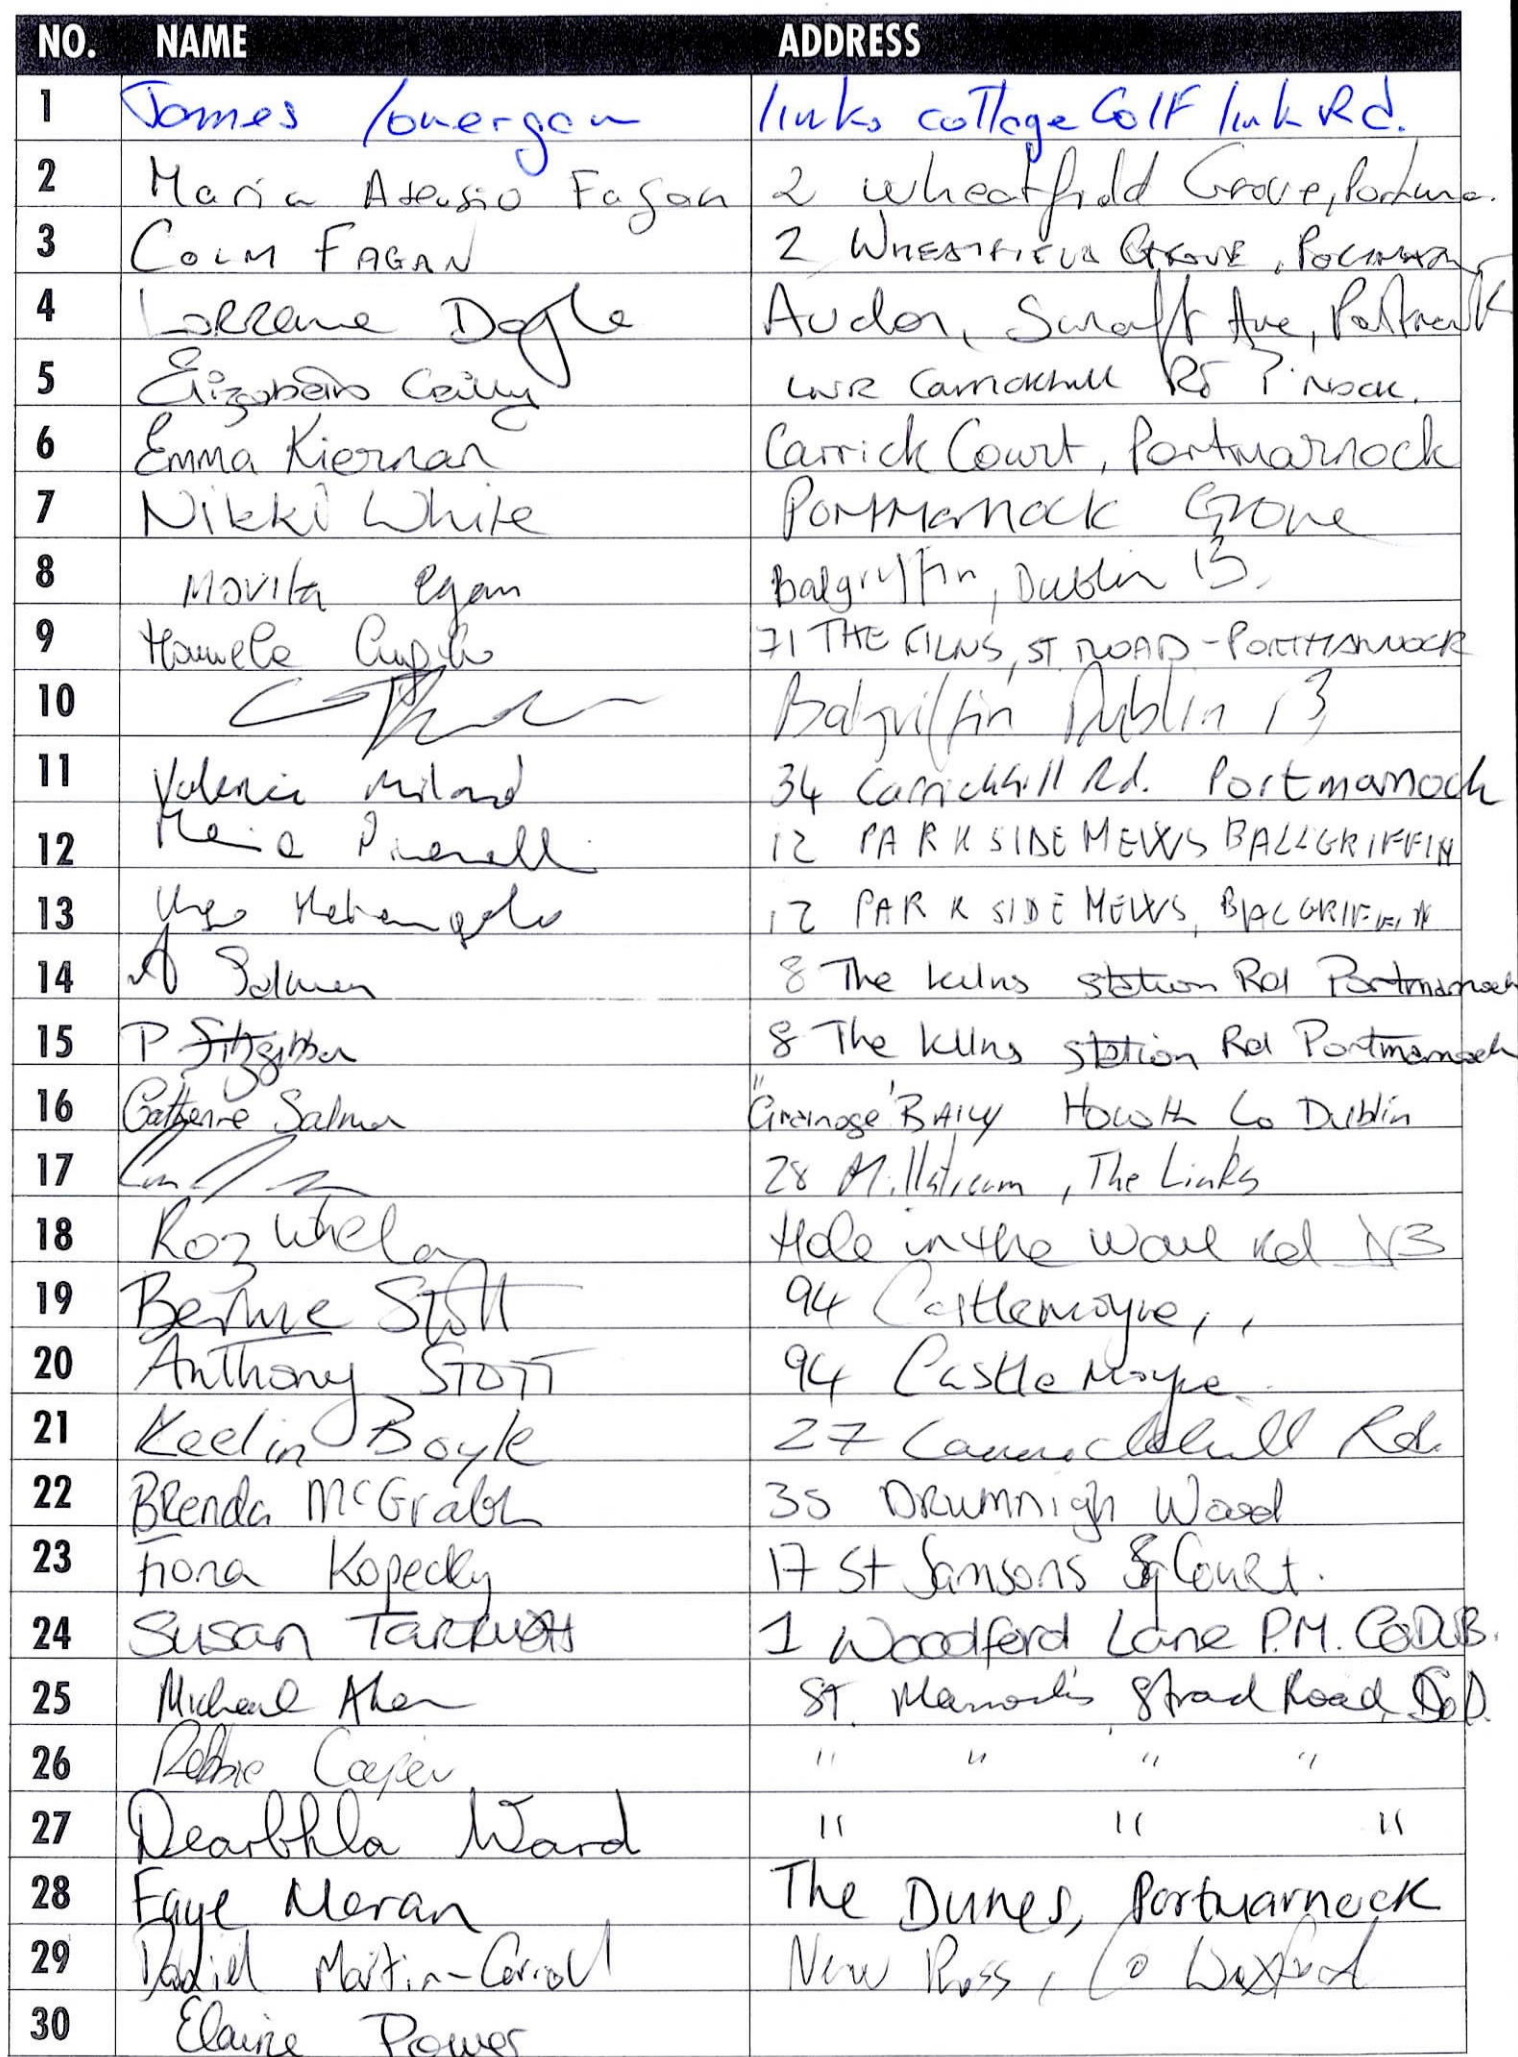 NO. NAME ADDRESS
1 James Lonergan links cottage Golf link Rd.
2 Maria Asensio Fagan 2 Wheatfield Grove,
3 COLM FAGAN 2 WHEATFIELD GROVE,
4 Lorraine Doyle Ave,
5 LWR Carrickhill Rd P'Nock.
6 Emma Kiernan Carrick Court, Portmarnock
7 Nikki White Portmarnock Grove
8 Movita Egan Balgriffin, Dublin 13.
9 71 THE KILNS, ST. ROAD - PORTMARNOCK
10 Balgriffin Dublin 13
11 Valerie 34 Carrickhill Rd. Portmarnock
12 12 PARKSIDE MEWS BALLGRIFFIN
13 12 PARKSIDE MEWS, BALGRIFFIN
14 A Salmon 8 The Kilns station Rd Portmarnock
15 P Fitzgibbon 8 The Kilns station Rd Portmarnock
16 Catherine Salmon Baily Howth Co Dublin
17 28 Millstream, The Links
18 Roz Whelan Hole in the Wall Rd D13
19 Bernie Stott 94 Castlemoyne,,
20 Anthony STOTT 94 Castlemoyne.
21 Keelin Boyle 27 Carrickhill Rd.
22 Brenda McGrath 35 Drumnigh Wood
23 Fiona Kopecky 17 St Samsons Court.
24 Susan 1 Woodford Lane P.M. Co DUB.
25 Michael St. Marnock's Strand Road,
26 Robbie " " " "
27 Dearbhla Ward " " "
28 Faye Meran The Dunes, Portmarnock
29 Daniel Martin-Carroll New Ross, Co Wexford
30 Elaine Power